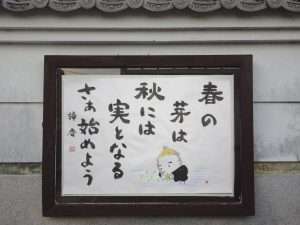 春の
芽は
秋には
実となる
さあ始めよう